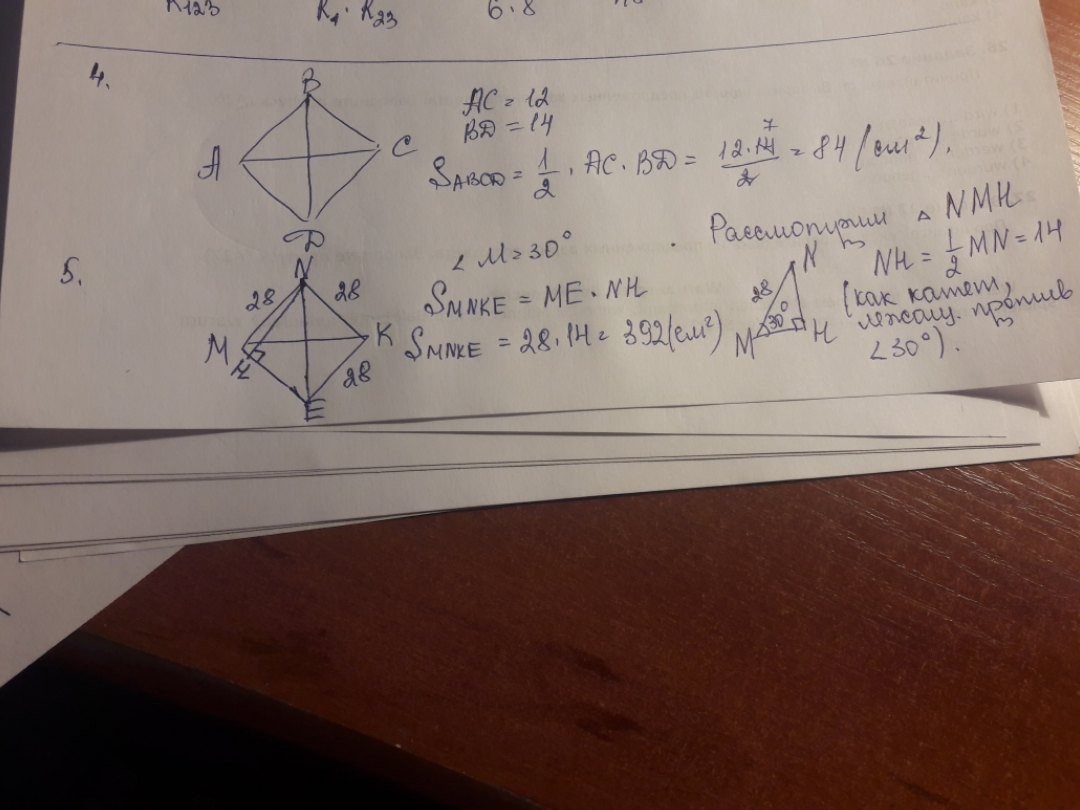 R123 R1 · R23 6 · 8
4.
B
A
C
D
AC = 12
BD = 14
SABCD = 1/2 · AC · BD = 12·14/2 = 84 (см²).
7
5.
N
28 28
M
K
H
28
E
∠ M = 30°
SMNKE = ME · NH
SMNKE = 28 · 14 = 392 (см²)
Рассмотрим △ NMH
N
28
30°
M
H
NH = 1/2 MN = 14
(как катет,
лежащ. против
∠30°).